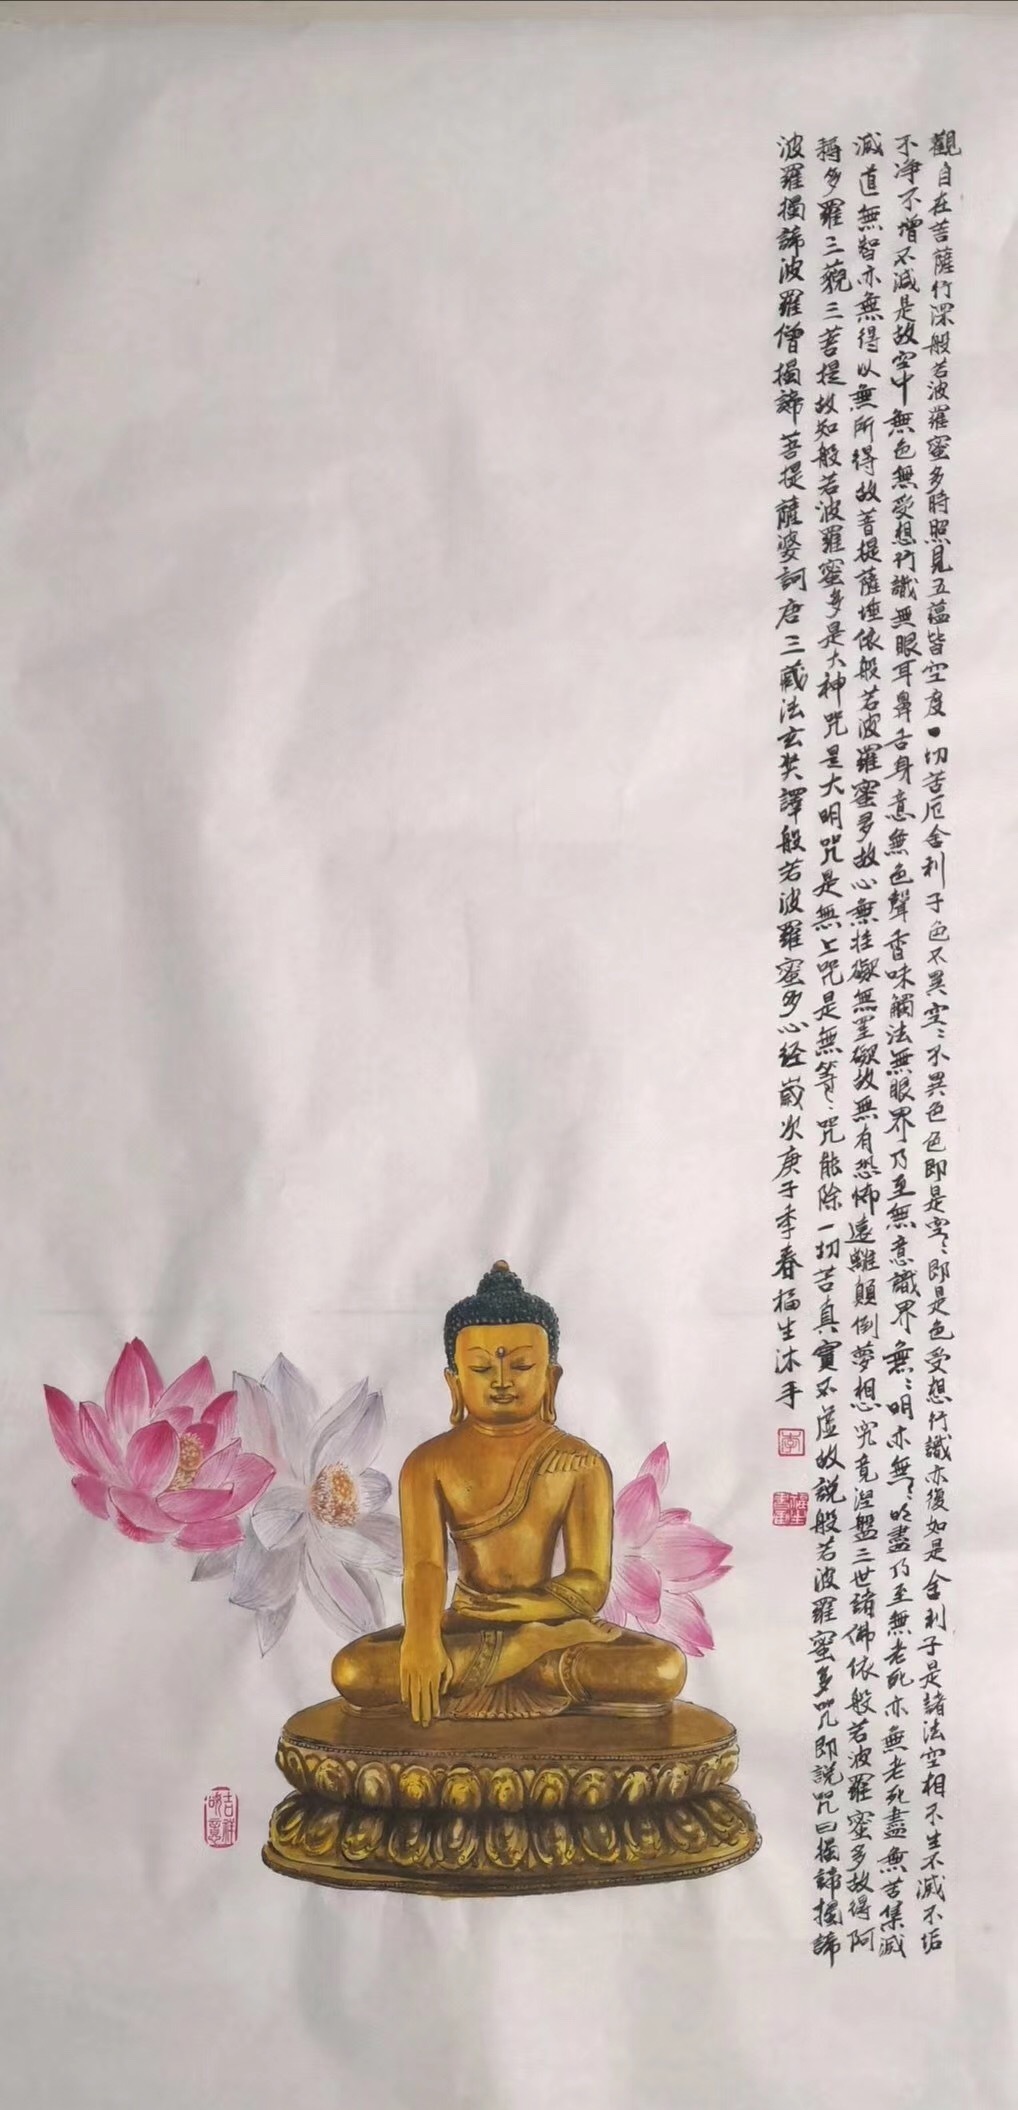 觀自在菩薩行深般若波羅蜜多時照見五蘊皆空度一切苦厄舍利子色不異空〻不異色色即是空〻即是色受想行識亦復如是舍利子是諸法空相不生不滅不垢
不淨不增不減是故空中無色無受想行識無眼耳鼻舌身意無色聲香味觸法無眼界乃至無意識界無〻明亦無〻明盡乃至無老死亦無老死盡無苦集滅
滅道無智亦無得以無所得故菩提薩埵依般若波羅蜜多故心無挂礙無罣礙故無有恐怖遠離顛倒夢想究竟涅盤三世諸佛依般若波羅蜜多故得阿
耨多羅三藐三菩提故知般若波羅蜜多是大神咒是大明咒是無上咒是無等〻咒能除一切苦真實不虛故説般若波羅蜜多咒即説咒曰揭諦揭諦
波羅揭諦波羅僧揭諦菩提薩婆訶唐三藏法玄奘譯般若波羅蜜多心经歲次庚子季春福生沐手
李
福生書畫
吉祥如意